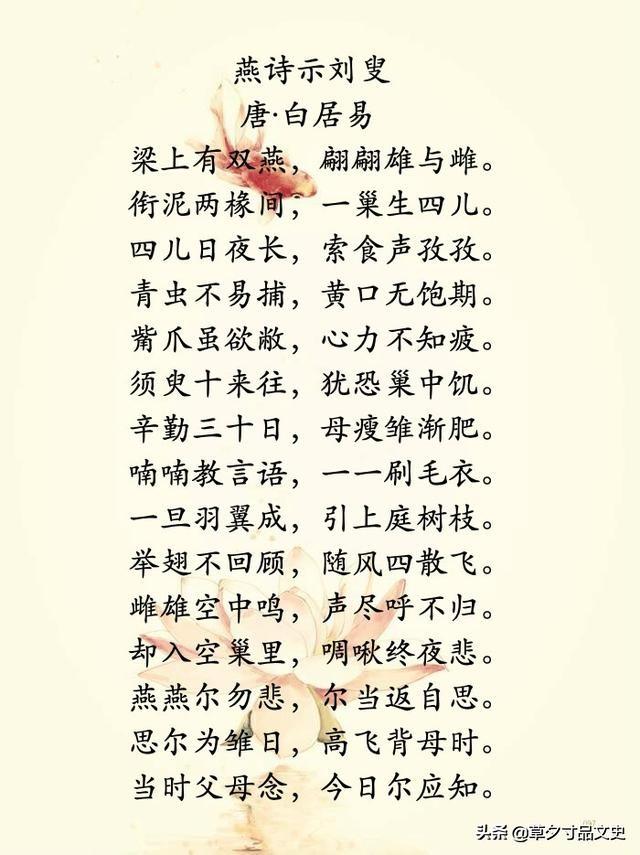 燕诗示刘叟
唐·白居易
梁上有双燕，翩翩雄与雌。
衔泥两椽间，一巢生四儿。
四儿日夜长，索食声孜孜。
青虫不易捕，黄口无饱期。
觜爪虽欲敝，心力不知疲。
须臾十来往，犹恐巢中饥。
辛勤三十日，母瘦雏渐肥。
喃喃教言语，一一刷毛衣。
一旦羽翼成，引上庭树枝。
举翅不回顾，随风四散飞。
雌雄空中鸣，声尽呼不归。
却入空巢里，啁啾终夜悲。
燕燕尔勿悲，尔当返自思。
思尔为雏日，高飞背母时。
当时父母念，今日尔应知。
头条 @草夕寸品文史